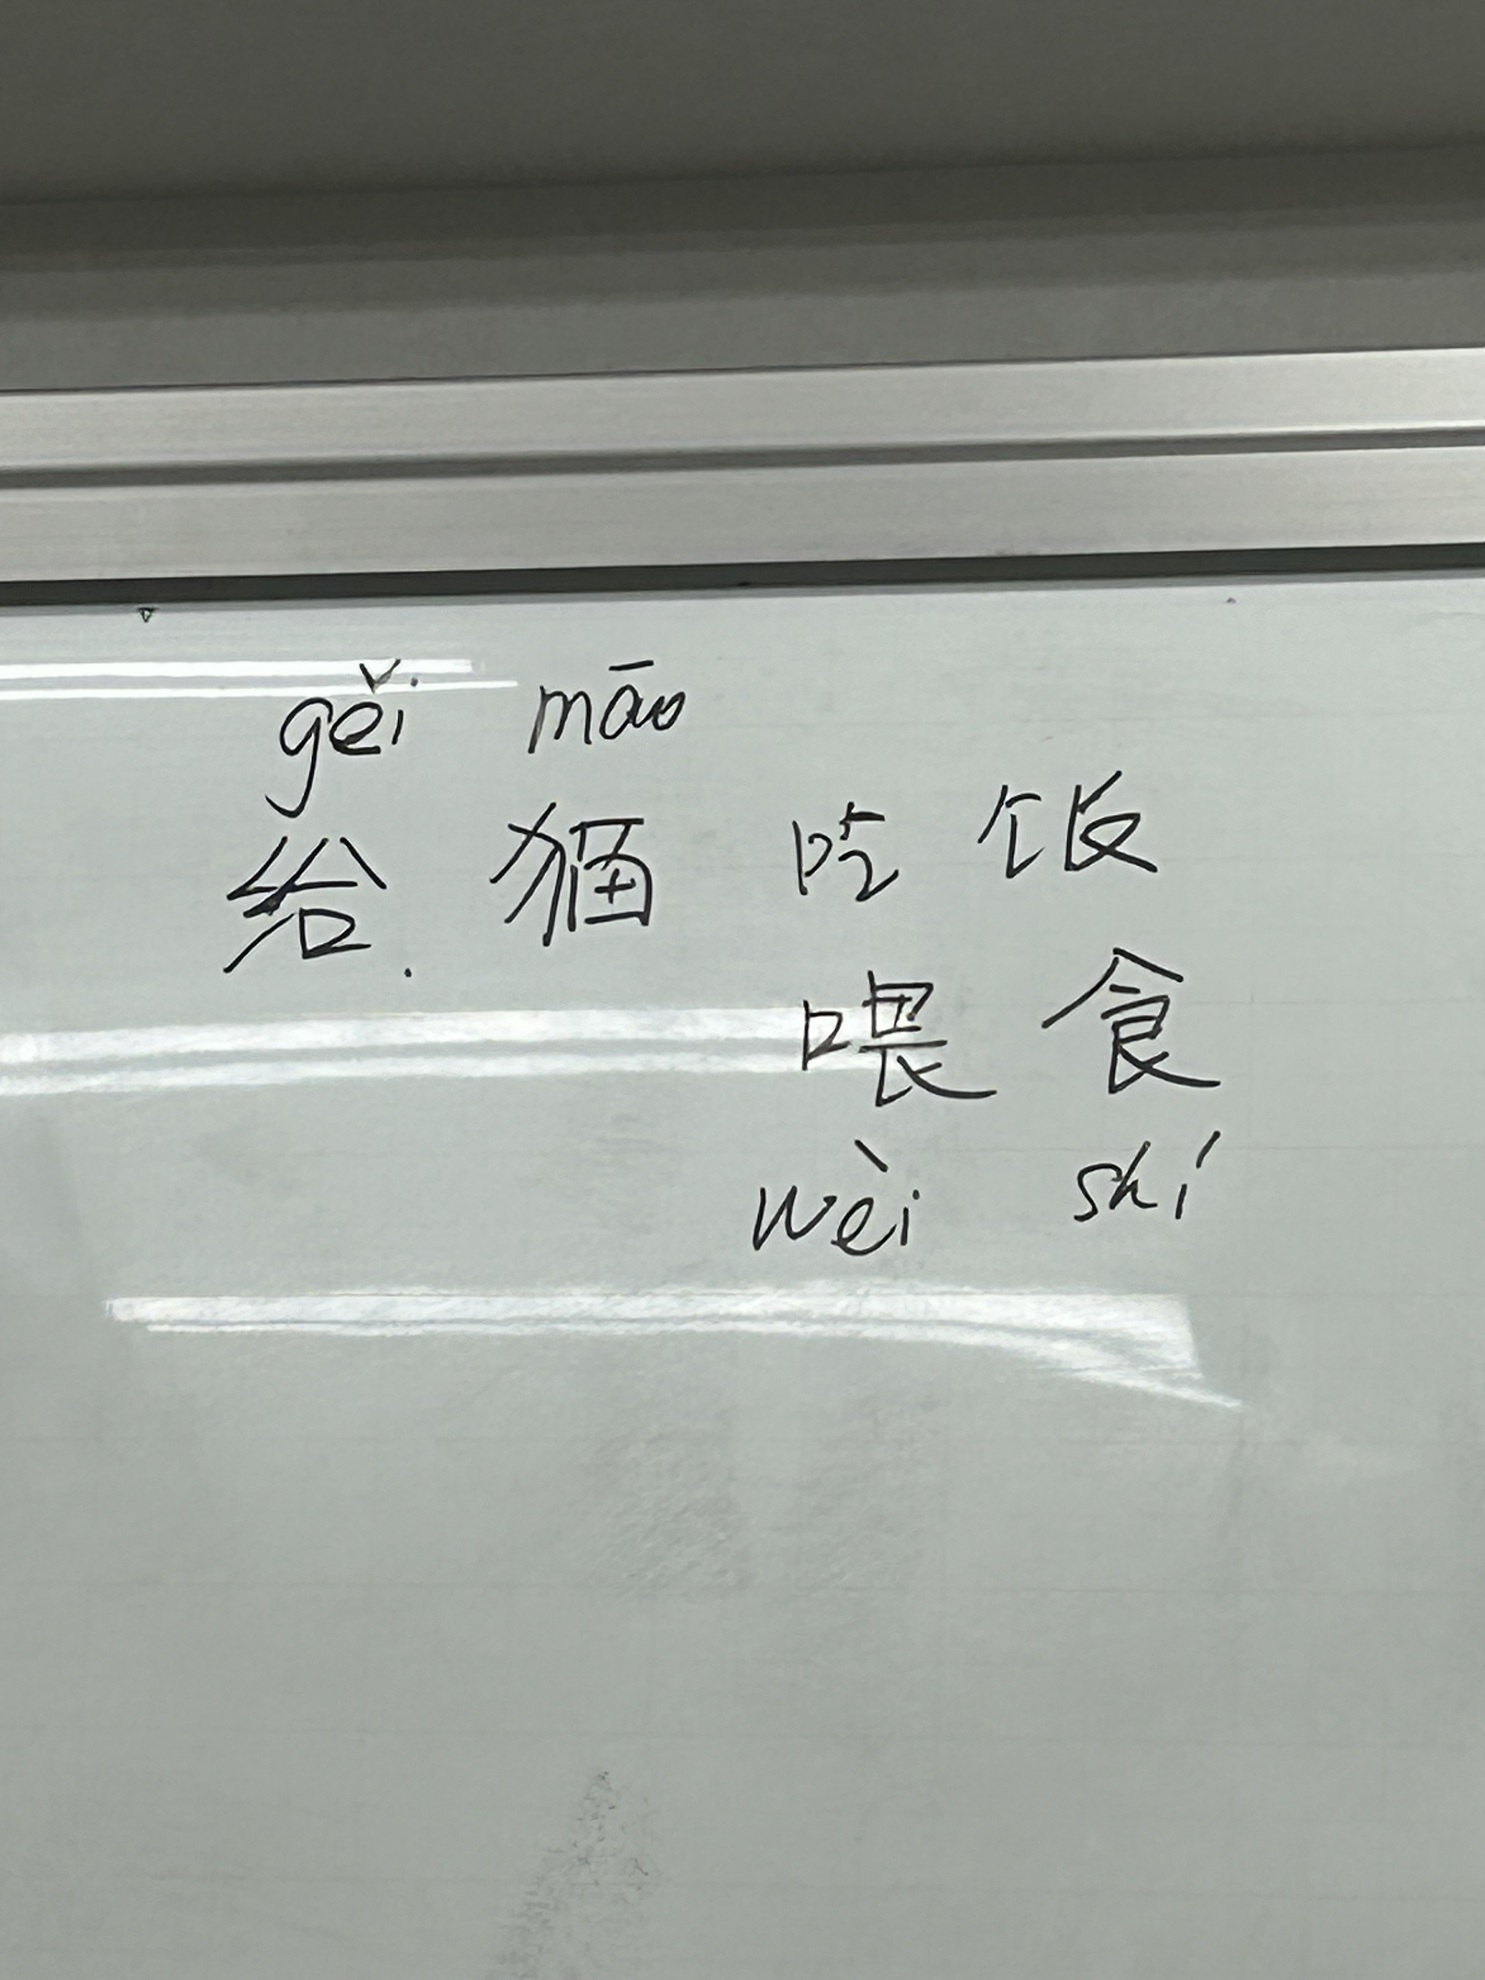 gěi māo
给 猫 吃 饭
喂 食
wèi shí